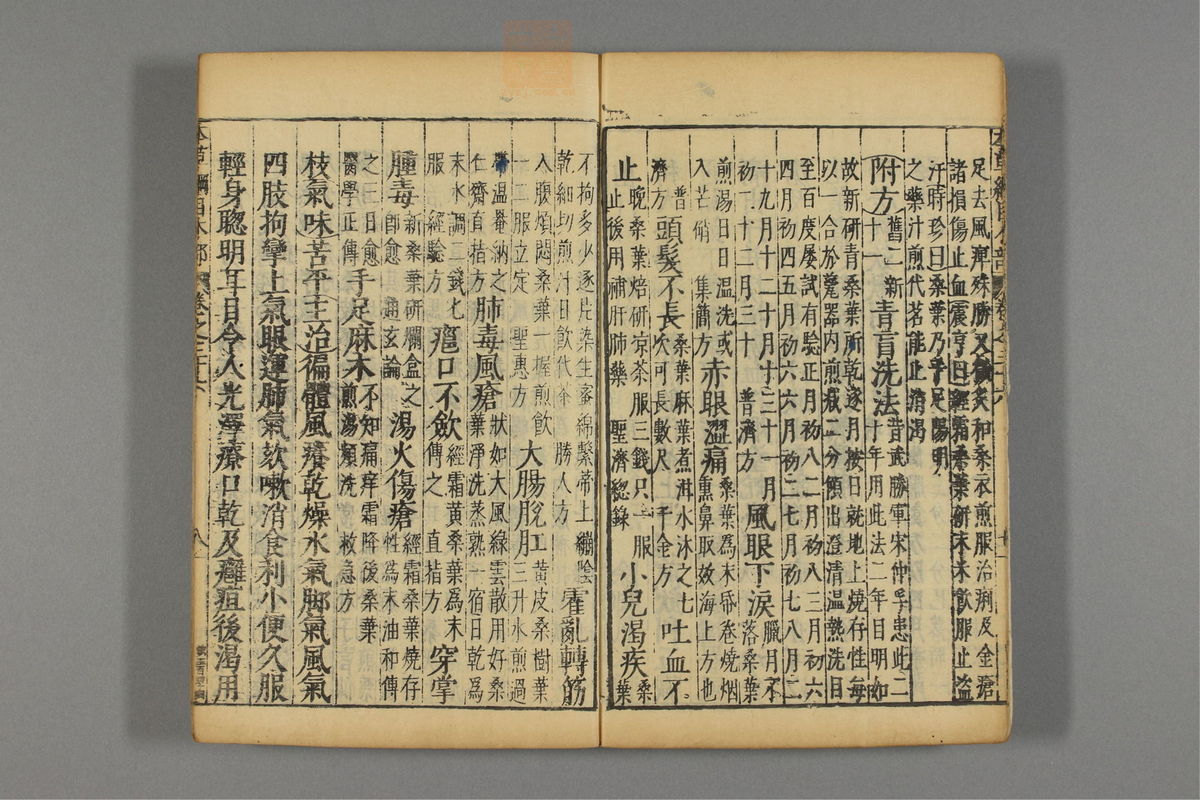 足去風痺殊勝又炙和桑衣煎服治痢及金瘡
諸損傷止血震亨曰經霜桑葉研末米飲服止盜
汗時珍曰桑葉乃手足陽明
之藥汁煎代茗能止消渴
附方舊二新十一青盲洗法昔武勝軍宋仲孚患此二十年用此法二年目明如
故新研青桑葉所乾逐月按日就地上燒存性每
以一合於甆器內煎減二分傾出澄清溫熱洗目
至百度屢試有驗正月初八二月初八三月初六
四月初四五月初六六月初二七月初七八月二
十九月十二十月十三十一月初二十二月三十普濟方風眼下淚臘月不落桑葉
煎湯日日溫洗或入芒硝集簡方赤眼澀痛桑葉為末帋卷燒烟熏鼻取效海上方也
普濟方頭髮不長桑葉麻葉煮泔水沐之七次可長數尺千金方吐血不
止晚桑葉焙研涼茶服三錢只一服止後用補肝肺藥聖濟總錄小兒渴疾桑葉
不拘多少逐片染生蜜綿繫蒂上繃陰
乾細切煎汁日飲代茶勝人方霍亂轉筋
入腹煩悶桑葉一握煎飲一二服立定聖惠方大腸脫肛黃皮桑樹葉三升水煎過
帶溫罨納之仁齋直指方肺毒風瘡狀如大風綠雲散用好桑葉淨洗蒸熟一宿日乾為
末水調二錢匕服經驗方癰口不斂經霜黃桑葉為末傅之直指方穿掌
腫毒新桑葉研爛盦之即愈通玄論湯火傷瘡經霜桑葉燒存性為末油和傅
之三日愈醫學正傳手足麻木不知痛痒霜降後桑葉煎湯頻洗救急方
枝氣味苦平主治徧體風癢乾燥水氣脚氣風氣
四肢拘攣上氣眼運肺氣欬嗽消食利小便久服
輕身聰明耳目令人光澤療口乾及癰疽後渴用